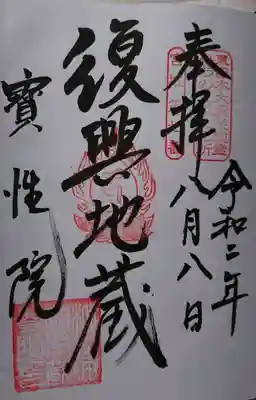 奉拝
令和二年
八月八日
復興地蔵
寳性院